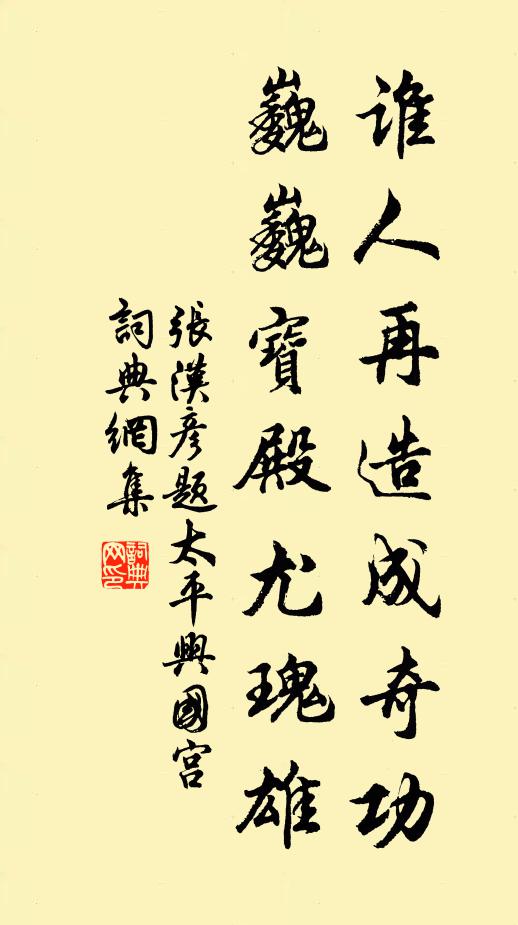 誰人再造成奇功
巍巍寶殿尤瑰雄
張漢彥題太平興國宮
詞典網集
詞典網印